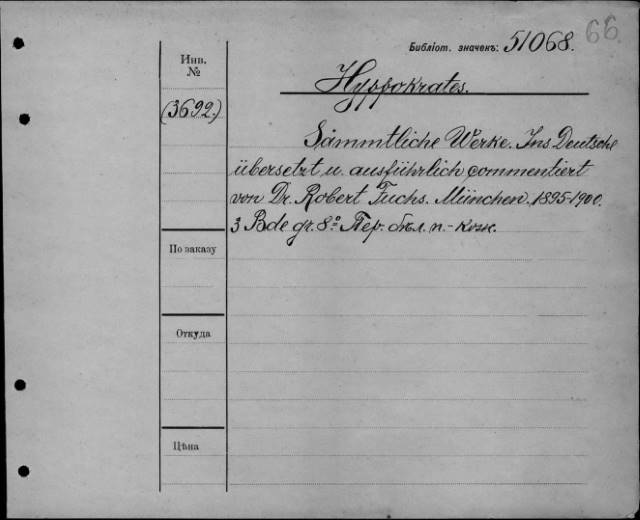 66
Библіот. значекъ: 51068.
Инв.
№
Hyppokrates.
(3692.)
Sämmtliche Werke. Ins Deutsche
übersetzt u. ausführlich commentiert
von Dr. Robert Fuchs. München. 1895-1900.
3 Bde gr. 8º Пер. бѣл. п.-кож.
По заказу
Откуда
Цѣна